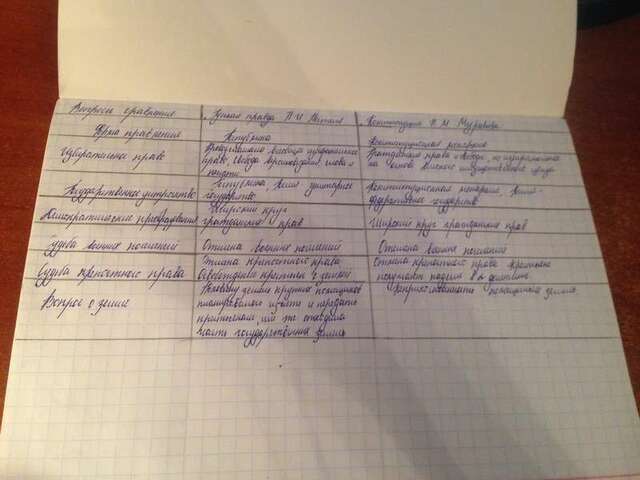 Вопросы сравнения
Русская правда П.И. Пестеля
Конституция Н.М. Муравьева
Форма правления
Республика
Конституционная монархия
Избирательное право
право свобода вероисповедания слова и
печати
Гражданские права и свободы, но
на основе высокого имущественного ценза
Государственное устройство
Республика,
государство
Конституционная монархия,
федеративное государство
Демократические преобразования
Широкий круг
гражданских прав
Широкий круг гражданских прав
Судьба военных поселений
Отмена военных поселений
Отмена военных поселений
Судьба крепостного права
Отмена крепостного права
крестьян с землей
Отмена крепостного права крестьяне
получают наделы в 2
Вопрос о земле
Половину земли крупных помещиков
и передать
крестьянам или
часть государственной земли
Неприкосновенность помещичьей земли